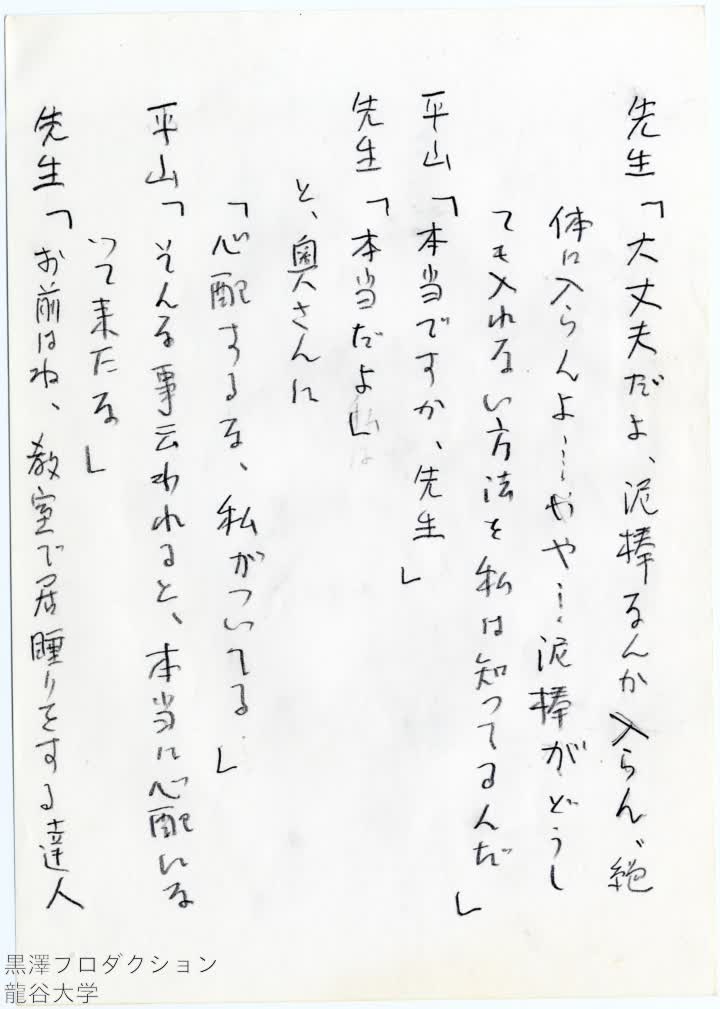 先生「大丈夫だよ、泥棒なんか入らん、絶
体に入らんよ…やや…泥棒がどうし
ても入れない方法を私は知ってるんだ」
平山「本当ですか、先生」
先生「本当だよ」
と、奥さんに
「心配するな、私がついてる」
平山「そんな事云われると、本当に心配にな
って来たな」
先生「お前はね、教室で居睡りをする達人
黒澤プロダクション
龍谷大学